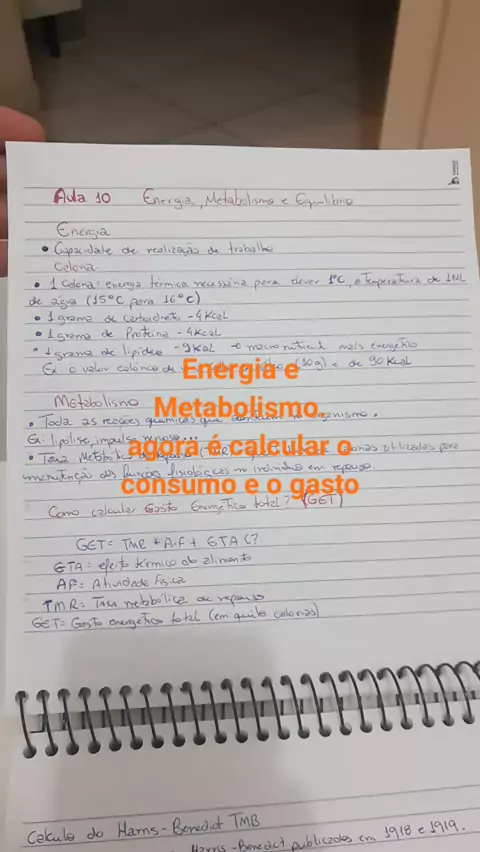 Aula 10 Energia, Metabolismo e Equilíbrio
Energia
• Capacidade de realização de trabalho
Caloria
• 1 Caloria: energia térmica necessária para elevar 1°C, a temperatura de 1ML
de água (15°C para 16°C)
• 1 grama de carboidrato - 4Kcal
• 1 grama de Proteína - 4Kcal
• 1 grama de lipídeo - 9Kcal → macronutriente mais energético
Ex: o valor calórico de (10g) é de 90Kcal
Metabolismo
• Toda as reações químicas que organismo.
Ex: lipólise, impulso nervoso...
• Taxa Metabólica calorias utilizadas para
manutenção das funções fisiológicas no indivíduo em repouso.
Energia e
Metabolismo
agora é calcular o
consumo e o gasto
Como calcular Gasto Energético total? (GET)
GET = TMR + A.F + ETA (?
ETA = efeito térmico do alimento
AF = Atividade Física
TMR = Taxa metabólica de repouso
GET = Gasto energético total (em quilo calorias)
Calculo do Harris-Benedict TMB
Harris-Benedict publicados em 1918 e 1919.